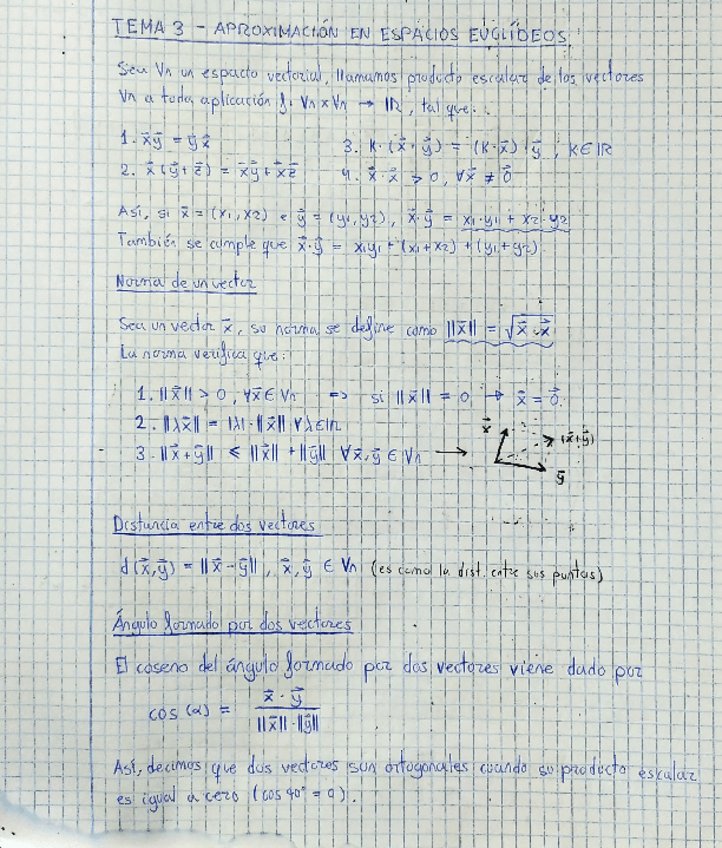 TEMA 3 - APROXIMACIÓN EN ESPACIOS EUCLÍDEOS
Sea Vn un espacio vectorial, llamamos producto escalar de los vectores
Vn a toda aplicación f: Vn x Vn → IR, tal que:
1. x⃗y⃗ = y⃗x⃗
3. K·(x⃗·y⃗) = (K·x⃗)·y⃗, K∈IR
2. x⃗(y⃗+z⃗) = x⃗y⃗+x⃗z⃗
4. x⃗·x⃗ > 0, ∀x⃗ ≠ 0⃗
Así, si x⃗ = (x1, x2) e y⃗ = (y1, y2), x⃗·y⃗ = x1·y1 + x2·y2
También se cumple que x⃗·y⃗ = x1y1 + (x1+x2) + (y1+y2)
Norma de un vector
Sea un vector x⃗, su norma se define como ||x⃗|| = √x⃗·x⃗
La norma verifica que:
1. ||x⃗|| > 0, ∀x⃗ ∈ Vn => si ||x⃗|| = 0 → x⃗ = 0⃗.
2. ||λx⃗|| = |λ|·||x⃗|| ∀λ∈IR
3. ||x⃗+y⃗|| ≤ ||x⃗|| + ||y⃗|| ∀x⃗,y⃗ ∈ Vn →
x⃗
(x⃗+y⃗)
y⃗
Distancia entre dos vectores
d(x⃗,y⃗) = ||x⃗-y⃗||, x⃗,y⃗ ∈ Vn (es como la dist. entre sus puntas)
Ángulo formado por dos vectores
El coseno del ángulo formado por dos vectores viene dado por
cos (α) = x⃗·y⃗ / ||x⃗||·||y⃗||
Así, decimos que dos vectores son ortogonales cuando su producto escalar
es igual a cero (cos 90° = 0).